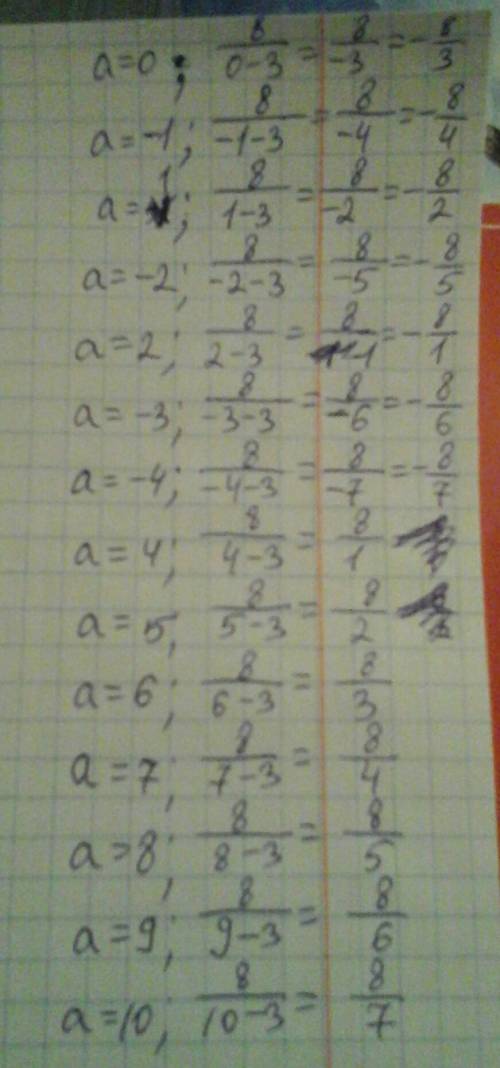 a=0; 8/(0-3) = 8/(-3) = -8/3
a=-1; 8/(-1-3) = 8/(-4) = -8/4
a=1; 8/(1-3) = 8/(-2) = -8/2
a=-2; 8/(-2-3) = 8/(-5) = -8/5
a=2; 8/(2-3) = 8/(-1) = -8/1
a=-3; 8/(-3-3) = 8/(-6) = -8/6
a=-4; 8/(-4-3) = 8/(-7) = -8/7
a=4; 8/(4-3) = 8/1
a=5; 8/(5-3) = 8/2
a=6; 8/(6-3) = 8/3
a=7; 8/(7-3) = 8/4
a=8; 8/(8-3) = 8/5
a=9; 8/(9-3) = 8/6
a=10; 8/(10-3) = 8/7